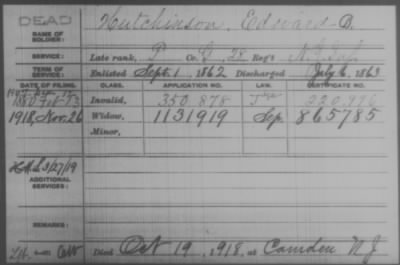 DEAD
NAME OF SOLDIER:
Hutchinson, Edward B.
SERVICE:
Late rank, P Co. G, 28 Reg't N.J. Inf.
TERM OF SERVICE:
Enlisted Sept. 1, 1862 Discharged July 6, 1863
DATE OF FILING. CLASS. APPLICATION NO. LAW. CERTIFICATE NO.
1880 Feb. 13 Invalid, 350.878
1918, Nov. 26 Widow, 1131919 Sep. 865785
Minor,
3/27/19
ADDITIONAL SERVICES:
REMARKS:
Died Oct 19, 1918, at Camden N J